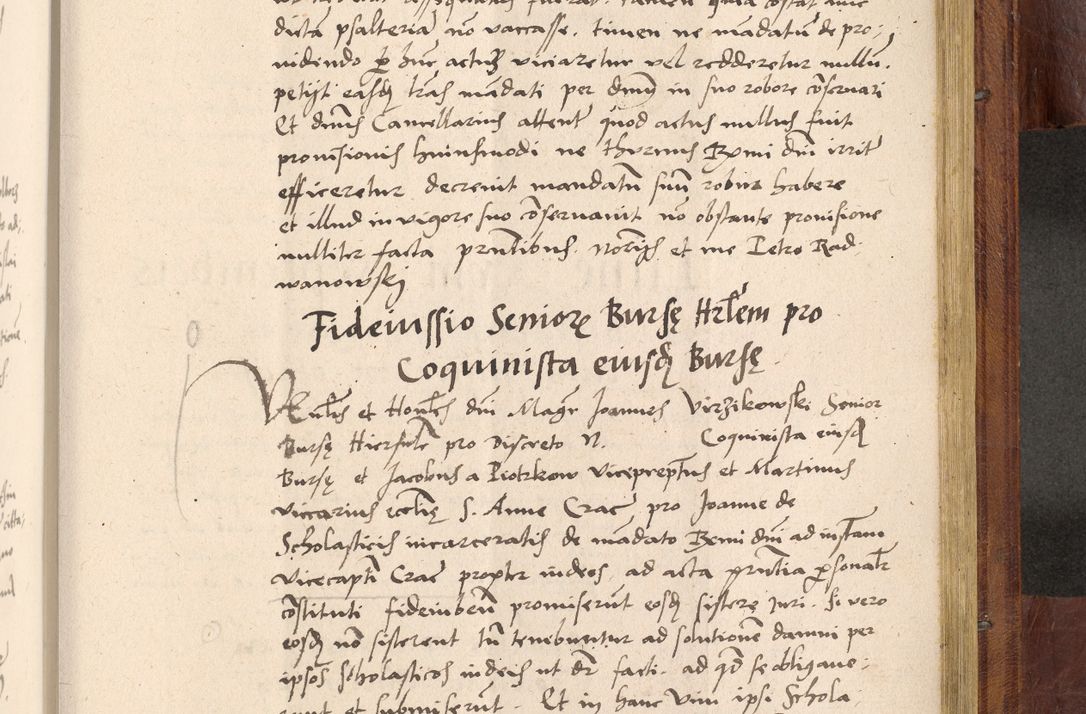 dicta psalteria nõ vaccasse. timen ne mãdatũ de pro:
uidendo ꝑ hũc actũ viciaretur vel redderetur nullũ.
petijt easdẽ lras mãdati per dnũ in suo robore cõseruari
Et dnus Cancellarius attent quod actus nullus fuit
prouisionis huiusmodi ne thurnus Rxmi dni irrit
efficeretur decreuit mandatũ suũ robur habere
et illud in vigore suo cõseruauit nõ obstante prouisione
nulliter facta prntibus. Norijs et me Petro Rad
wanowskj
Fideiussio Seniorꝝ Bursę Hrlem pro
Coquinista eiusdẽ Bursę
VEnłes et Honłes dni Magr Joannes Virzikowski Senior
Bursę Hierslẽ pro Discreto N. Coquinista eiusdẽ
Bursę et Jacobus a Piotrkow viceprepłus et Martinus
viccarius ecclię S. Anne Crac pro Joanne de
Scholasticis incarceratis de mãdato Rxmi dni ad instam
vicecapti Crac propter iudeos, ad acta prntia ꝑsonalr
cõstituti fideiubeñ promiserũt eosdẽ sistere Juri. Si vero
eosdẽ nõ sisterent tũ tenebuntur ad solutionẽ damni per
ipsos scholasticos iudeis ut dr facti. ad qd se obligaue:
runt et submiserũt. Et in hanc vim ipsi Schola